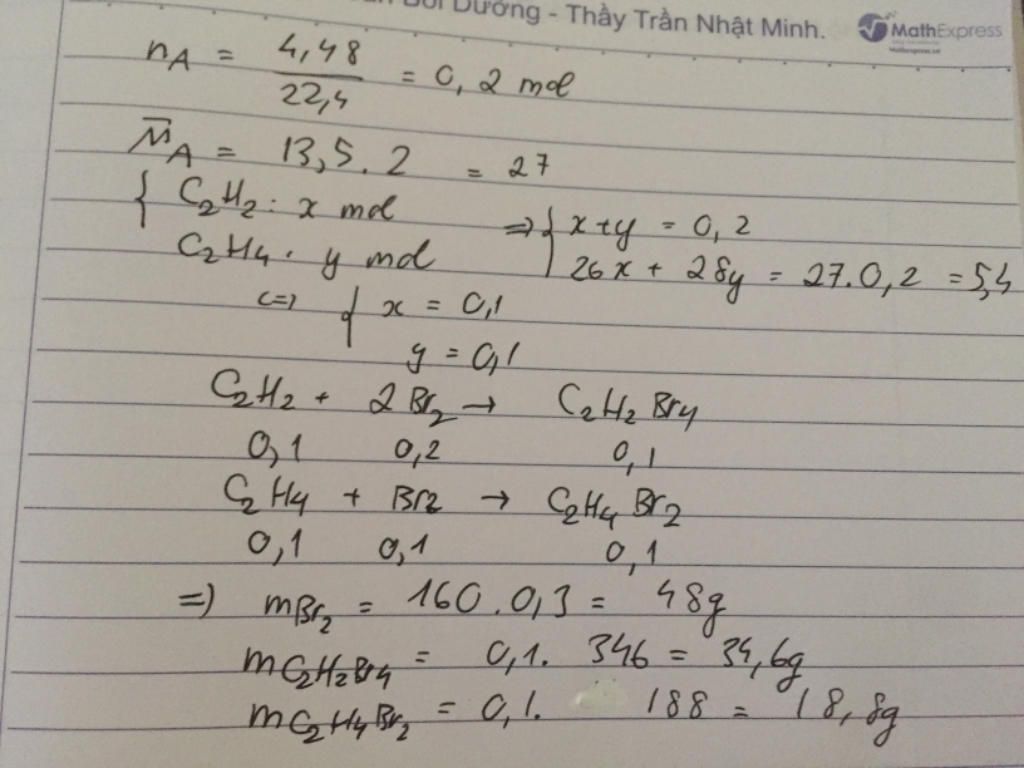 Bồi Dưỡng - Thầy Trần Nhật Minh.
MathExpress
nA = 4,48 / 22,4 = 0,2 mol
M̅A = 13,5 . 2 = 27
{ C2H2 : x mol
C2H4 : y mol
=> { x + y = 0,2
26x + 28y = 27.0,2 = 5,4
<=> { x = 0,1
y = 0,1
C2H2 + 2Br2 → C2H2Br4
0,1 0,2 0,1
C2H4 + Br2 → C2H4Br2
0,1 0,1 0,1
=> mBr2 = 160 . 0,3 = 48g
mC2H2Br4 = 0,1. 346 = 34,6g
mC2H4Br2 = 0,1. 188 = 18,8g